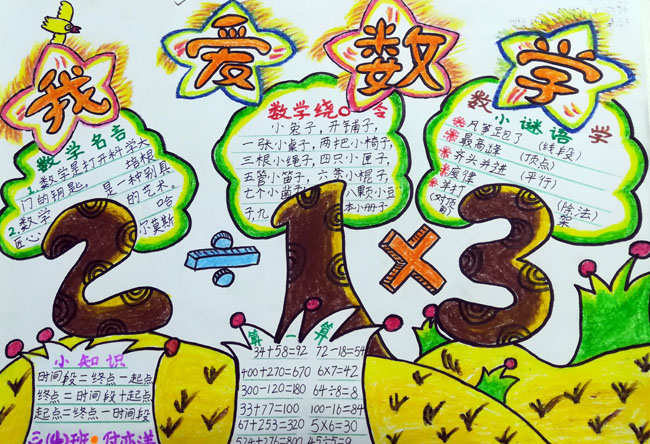 我爱数学
数学名言
1.数学是打开科学大
门的钥匙。 培根
2.数学 是一种别具
匠心 的艺术。
哈
尔莫斯
数学绕 令
小兔子,开铺子,
一张小桌子,两把小椅子,
三根小绳子,四只小匣子,
五管小笛子,六条小棍子,
七个小 小豆
子九 本小册子
数学小谜语
风筝跑了(线段)
最高峰(顶点)
齐头并进(平行)
废律(除法)
羊打架(对顶角)
2÷1×3
小知识
时间段=终点-起点
终点=时间段+起点
起点=终点-时间段
三(4)班
算一算
34+58=92 72-18=54
400+270=670 6×7=42
300-120=180 64÷8=8
33+77=100 100-16=84
67+253=320 5×6=30
524+276=800 45÷5=9